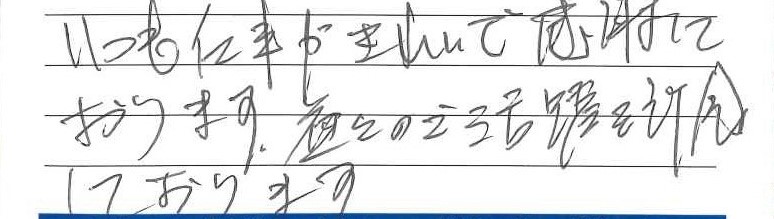 いつも仕事がきれいで感謝して
おります。益々のご活躍を祈念
しております